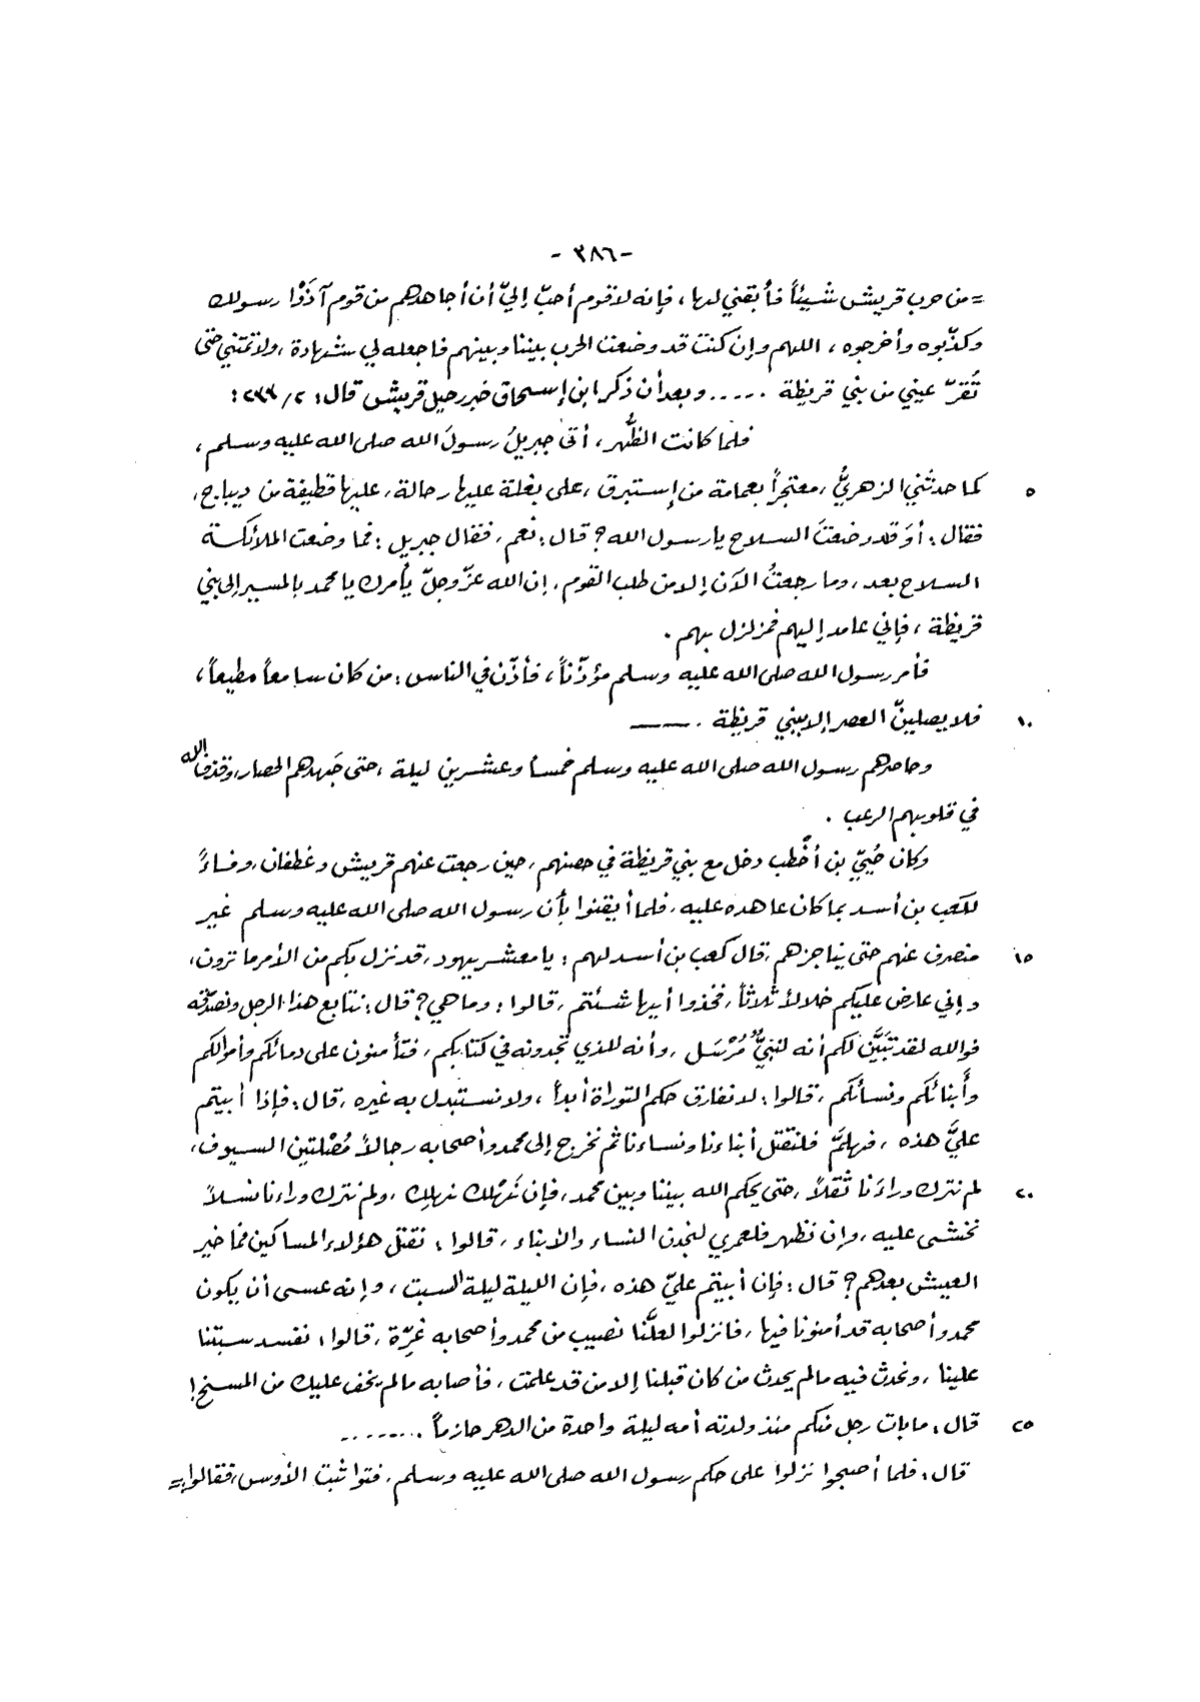 - ٣٨٦ -
= من حرب قريش شيئاً فأبقني لها ، فإنه لا قوم أحبّ إليّ أن أجاهدهم من قوم آذَوْا رسولك
وكذّبوه وأخرجوه ، اللهم وإن كنت قد وضعت الحرب بيننا وبينهم فاجعله لي شهادة ، ولا تمتني حتى
تُقرّ عيني من بني قريظة ..... وبعد أن ذكر ابن إسحاق خبر رحيل قريش قال : ٢/ :
فلما كانت الظُّهر ، أتى جبريلُ رسولَ الله صلى الله عليه وسلم ،
٥ كما حدثني الزهريُّ ، معتجراً بعمامة من إستبرق ، على بغلة عليها رحالة ، عليها قطيفة من ديباج ،
فقال : أوَ قد وضعتَ السلاح يا رسول الله ؟ قال : نعم ، فقال جبريل : فما وضعت الملائكة
السلاح بعد ، وما رجعتُ الآن إلا من طلب القوم ، إن الله عزّ وجلّ يأمرك يا محمد بالمسير إلى بني
قريظة ، فإني عامد إليهم فمزلزل بهم .
فأمر رسول الله صلى الله عليه وسلم مؤذّناً ، فأذّن في الناس : من كان سامعاً مطيعاً ،
١٠ فلا يصلينّ العصر إلا ببني قريظة . ----
وحاصرهم رسول الله صلى الله عليه وسلم خمساً وعشرين ليلة ، حتى جَهدهم الحصار ، وقذف الله
في قلوبهم الرعب .
وكان حُيَيّ بن أخْطب دخل مع بني قريظة في حصنهم ، حين رجعت عنهم قريش وغطفان ، وفاءً
لكعب بن أسد بما كان عاهده عليه ، فلما أيقنوا بأن رسول الله صلى الله عليه وسلم غير
١٥ منصرف عنهم حتى يناجزهم ، قال كعب بن أسد لهم : يا معشر يهود ، قد نزل بكم من الأمر ما ترون ،
وإني عارض عليكم خلالاً ثلاثاً ، فخذوا أيها شئتم ، قالوا : وما هي ؟ قال : نتابع هذا الرجل ونصدّقه
فوالله لقد تَبَيَّن لكم أنه لنبيٌّ مُرْسَل ، وأنه للذي تجدونه في كتابكم ، فتأمنون على دمائكم وأموالكم
وأبنائكم ونسائكم ، قالوا : لا نفارق حكم التوراة أبداً ، ولا نستبدل به غيره ، قال : فإذا أبيتم
عليَّ هذه ، فهلمَّ فلنقتل أبناءنا ونساءنا ثم نخرج إلى محمد وأصحابه رجالاً مُصْلتين السيوف ،
٢٠ لم نترك وراءَنا ثَقَلاً ، حتى يحكم الله بيننا وبين محمد ، فإن نَهْلك نهلِك ، ولم نترك وراءنا نسلاً
نخشى عليه ، وإن نظهر فلعمري لنجدن النساء والأبناء ، قالوا : نقتل هؤلاء المساكين فما خير
العيش بعدهم ؟ قال : فإن أبيتم عليّ هذه ، فإن الليلة ليلة السبت ، وإنه عسى أن يكون
محمد وأصحابه قد أمنونا فيها ، فانزلوا لعلَّنا نصيب من محمد وأصحابه غِرّة ، قالوا : نفسد سبتنا
علينا ، ونحدث فيه ما لم يحدث من كان قبلنا إلا من قد علمت ، فأصابه ما لم يخف عليك من المسخ !
٢٥ قال : ما بات رجل منكم منذ ولدته أمه ليلة واحدة من الدهر حازماً .......
قال : فلما أصبحوا نزلوا على حكم رسول الله صلى الله عليه وسلم ، فتواثبت الأوس ، فقالوا : =